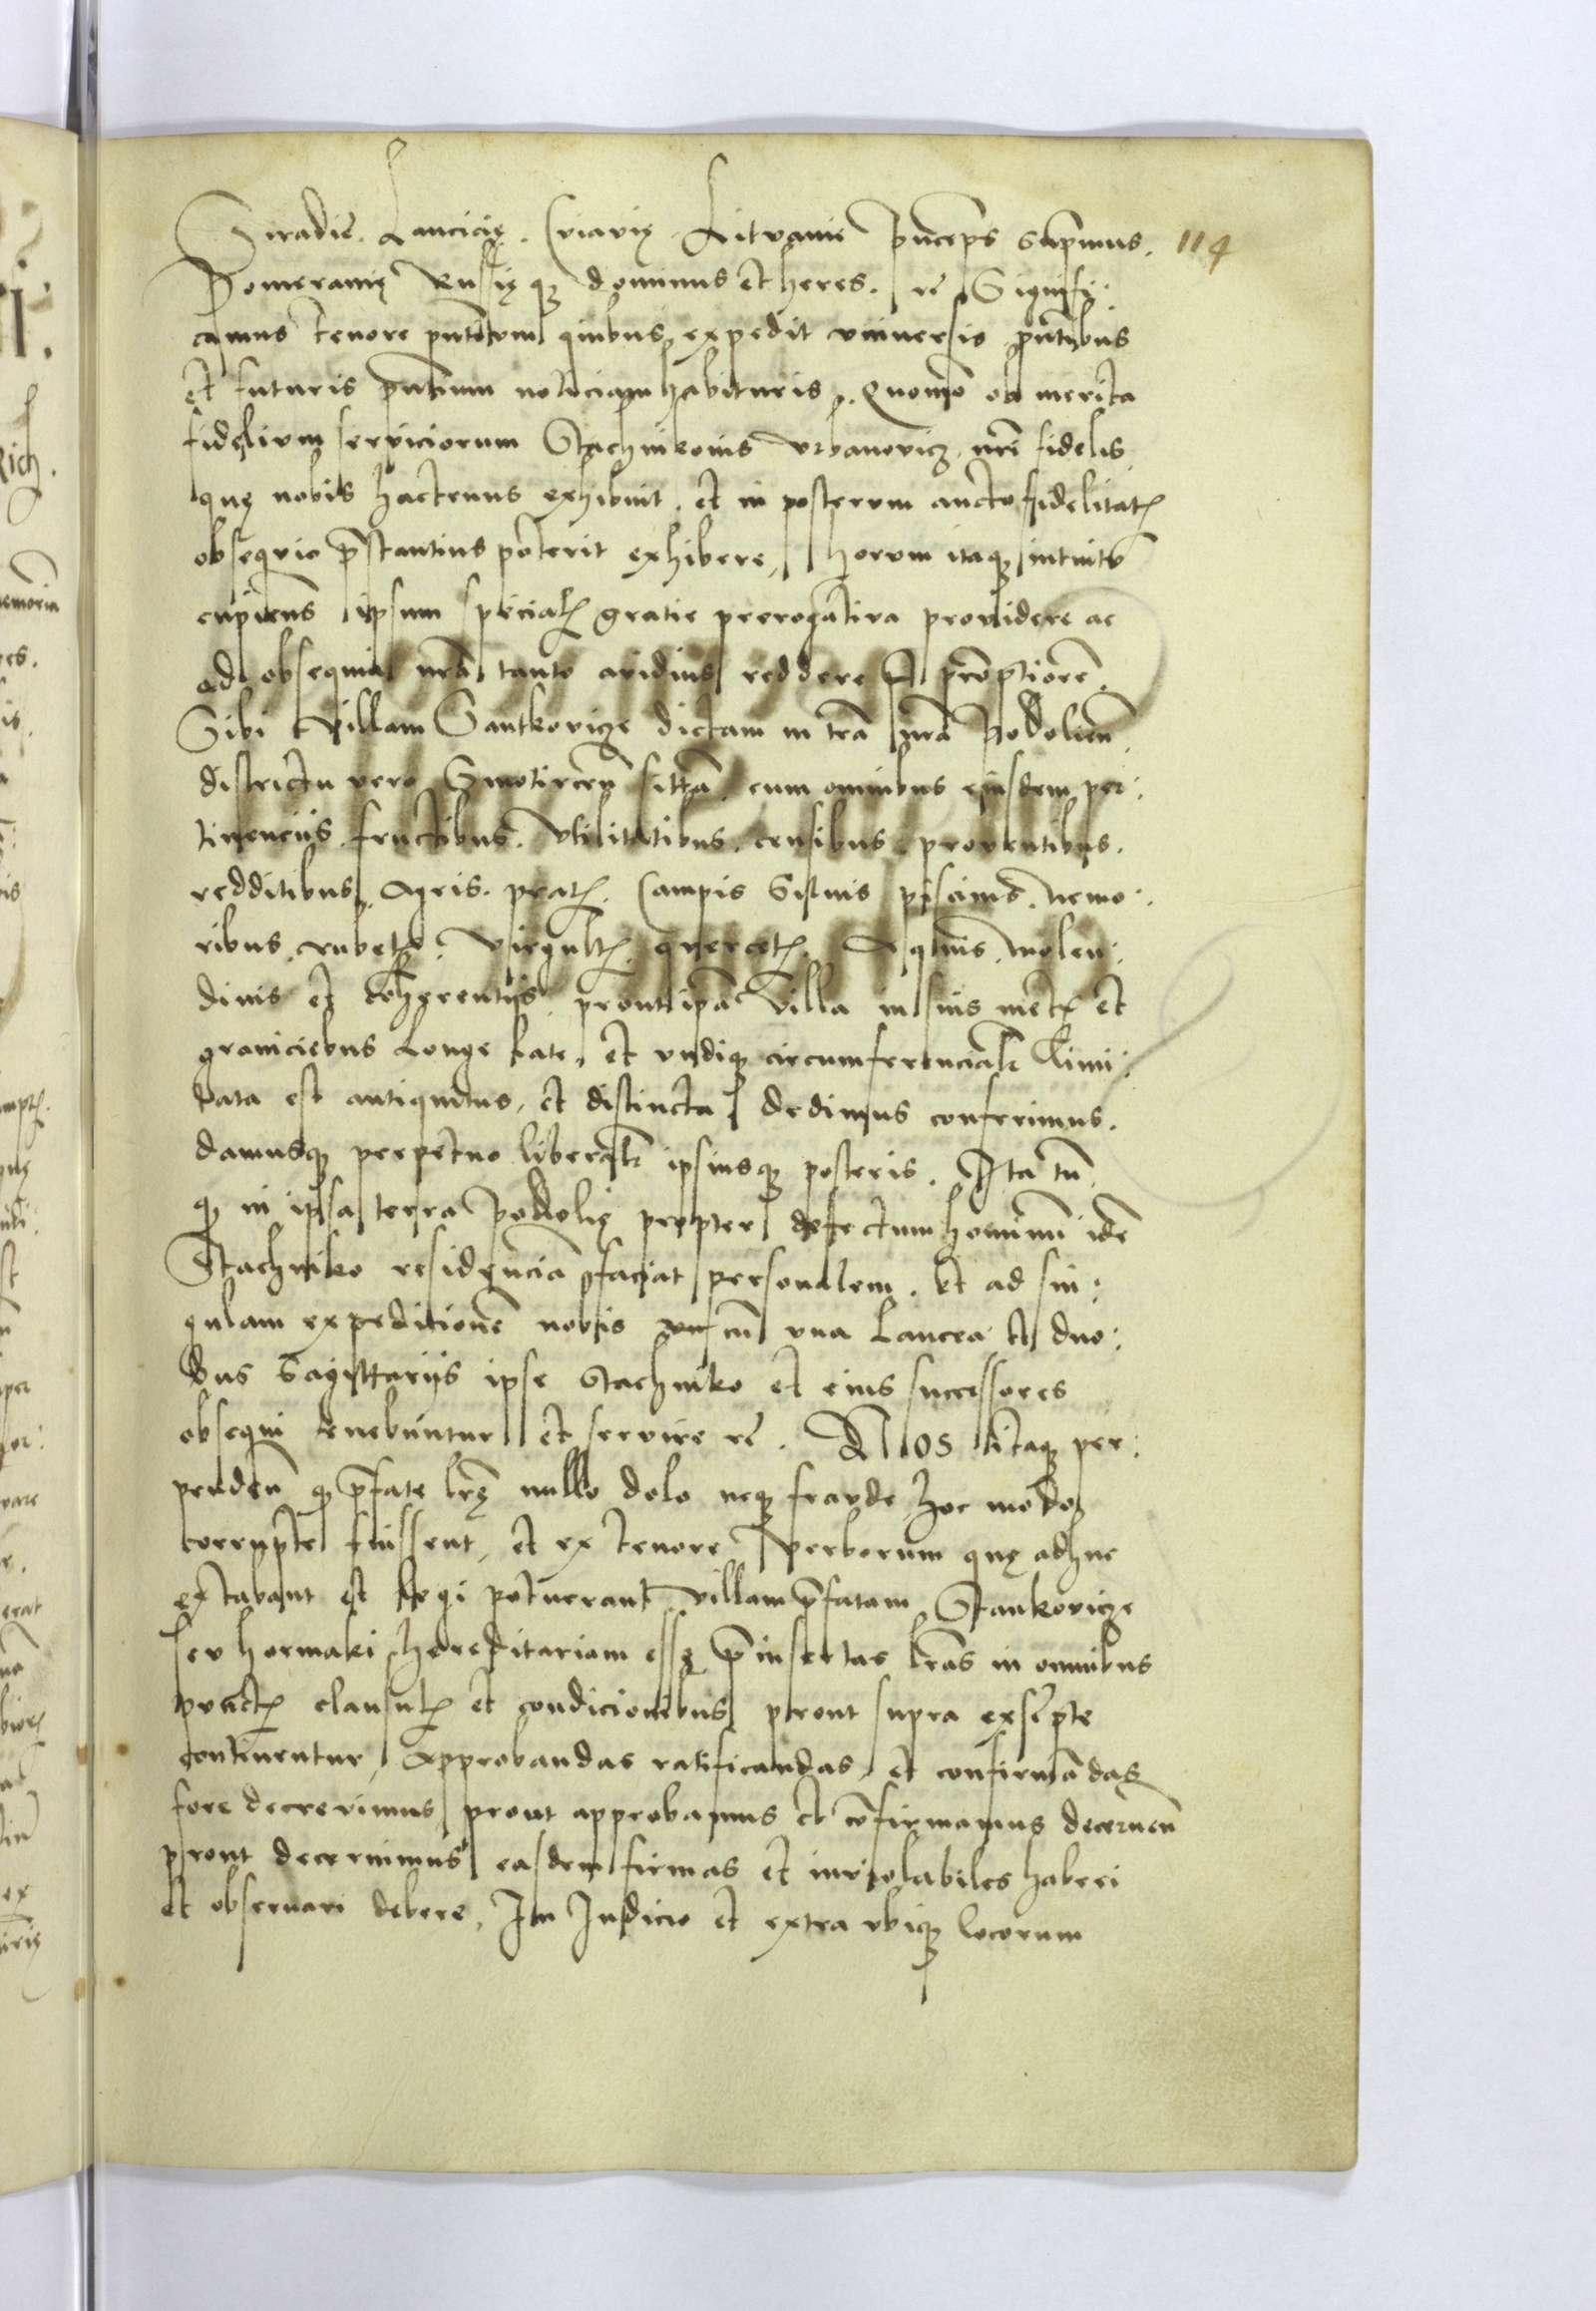 Siradiē. Lancicię. Cuiavię Litvanie pn̄ceps sup̄mus. 114
Pomeranię Russię q dominus et heres. rē Signifi:
camus tenore pn̄tium quibus expedit vniuersis pn̄tibus
et futuris pn̄tium noticiam habituris. Quomō ob merita
fidelium serviciorum Stachnikonis Vrbanovicz nr̄i fidelis
quę nobis hactenus exhibuit. et in posterum aucto fidelitatꝭ
obsequio p̄stantius poterit exhibere, horum itaqꝫ intuitu
cupiens ipsum specialꝭ gratie prerogativa providere ac
ad obsequia nr̄a tanto avidius reddere prōptiorē,
Sibi villam Stankovicze dictam in trā nrā Podolień
districtu vero Smotircen̄ sittā. cum omnibus eiusdem per:
tinenciis fructibus. vtilitatibus. censibus. proventibus.
redditibus, Agris. pratꝭ. Campis Silvis piscinis. nemo:
ribus. rubetꝭ. virgultꝭ quercetꝭ. Aquis. molen:
dinis et cohęrentijs. prout ipā villa in suis metꝭ et
graniciebus Longe late, et vndiqꝫ circumferencialꝭ limi:
tata est antiquitus, et distincta dedimus conferimus.
damusqꝫ perpetuo liberalꝭ ipsiusqꝫ posteris. Ita tn̄
qꝫ in ipsa terra Podolię propter defectum hominū idē
Stachniko residenciā faciat personalem. et ad sin:
gulam expeditionē nobis cū vna Lancea et duo:
bus Sagittarijs ipse Stachniko et eius successores
obsequi tenebuntur et servire rē. Nos itaqꝫ per:
penden̄ qꝫ p̄fate lr̄ę nullo dolo neqꝫ fravde hoc modo
corrupte fuissent, et ex tenore verborum quę adhuc
extabant et legi potuerant villam p̄fatam Stankovicze
sev hormaki hereditariam essę p̄insertas lr̄as in omnibus
punctꝭ clausulꝭ et condicionibus prout supra exscr̄pte
continentur, Approbandas ratificandas, et confirmādas
fore decrevimus prout approbamus et cōfirmamus decernen̄
prout decernimus easdem firmas et inviolabiles haberi
et observari debere, In Iudicio et extra vbiqꝫ locorum